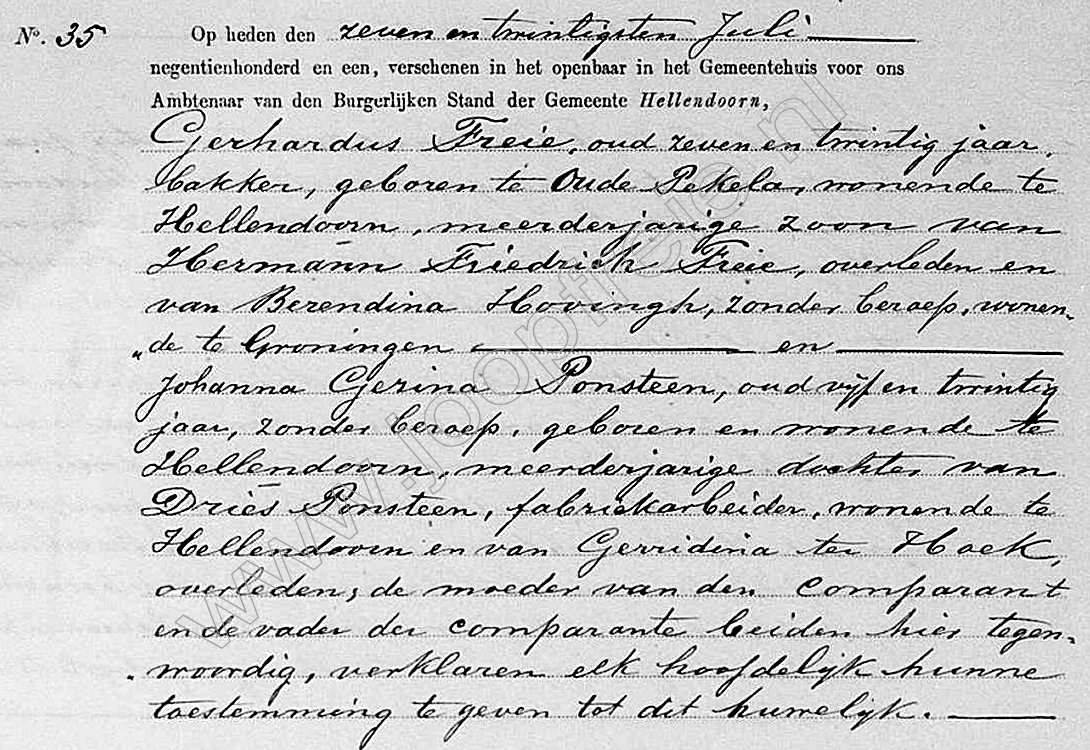 No. 35 Op heden den zeven en twintigsten Juli
negentienhonderd en een, verschenen in het openbaar in het Gemeentehuis voor ons
Ambtenaar van den Burgerlijken Stand der Gemeente Hellendoorn,
Gerhardus Freie, oud zeven en twintig jaar,
bakker, geboren te Oude Pekela, wonende te
Hellendoorn, meerderjarige zoon van
Hermann Friedrich Freie, overleden en
van Berendina Hovingh, zonder beroep, wonen-
"de te Groningen en
Johanna Gerina Ponsteen, oud vijf en twintig
jaar, zonder beroep, geboren en wonende te
Hellendoorn, meerderjarige dochter van
Driës Ponsteen, fabriekarbeider, wonende te
Hellendoorn en van Gerridina ter Hoek,
overleden; de moeder van den comparant
en de vader der comparante beiden hier tegen-
woordig, verklaren elk hoofdelijk hunne
toestemming te geven tot dit huwelijk.